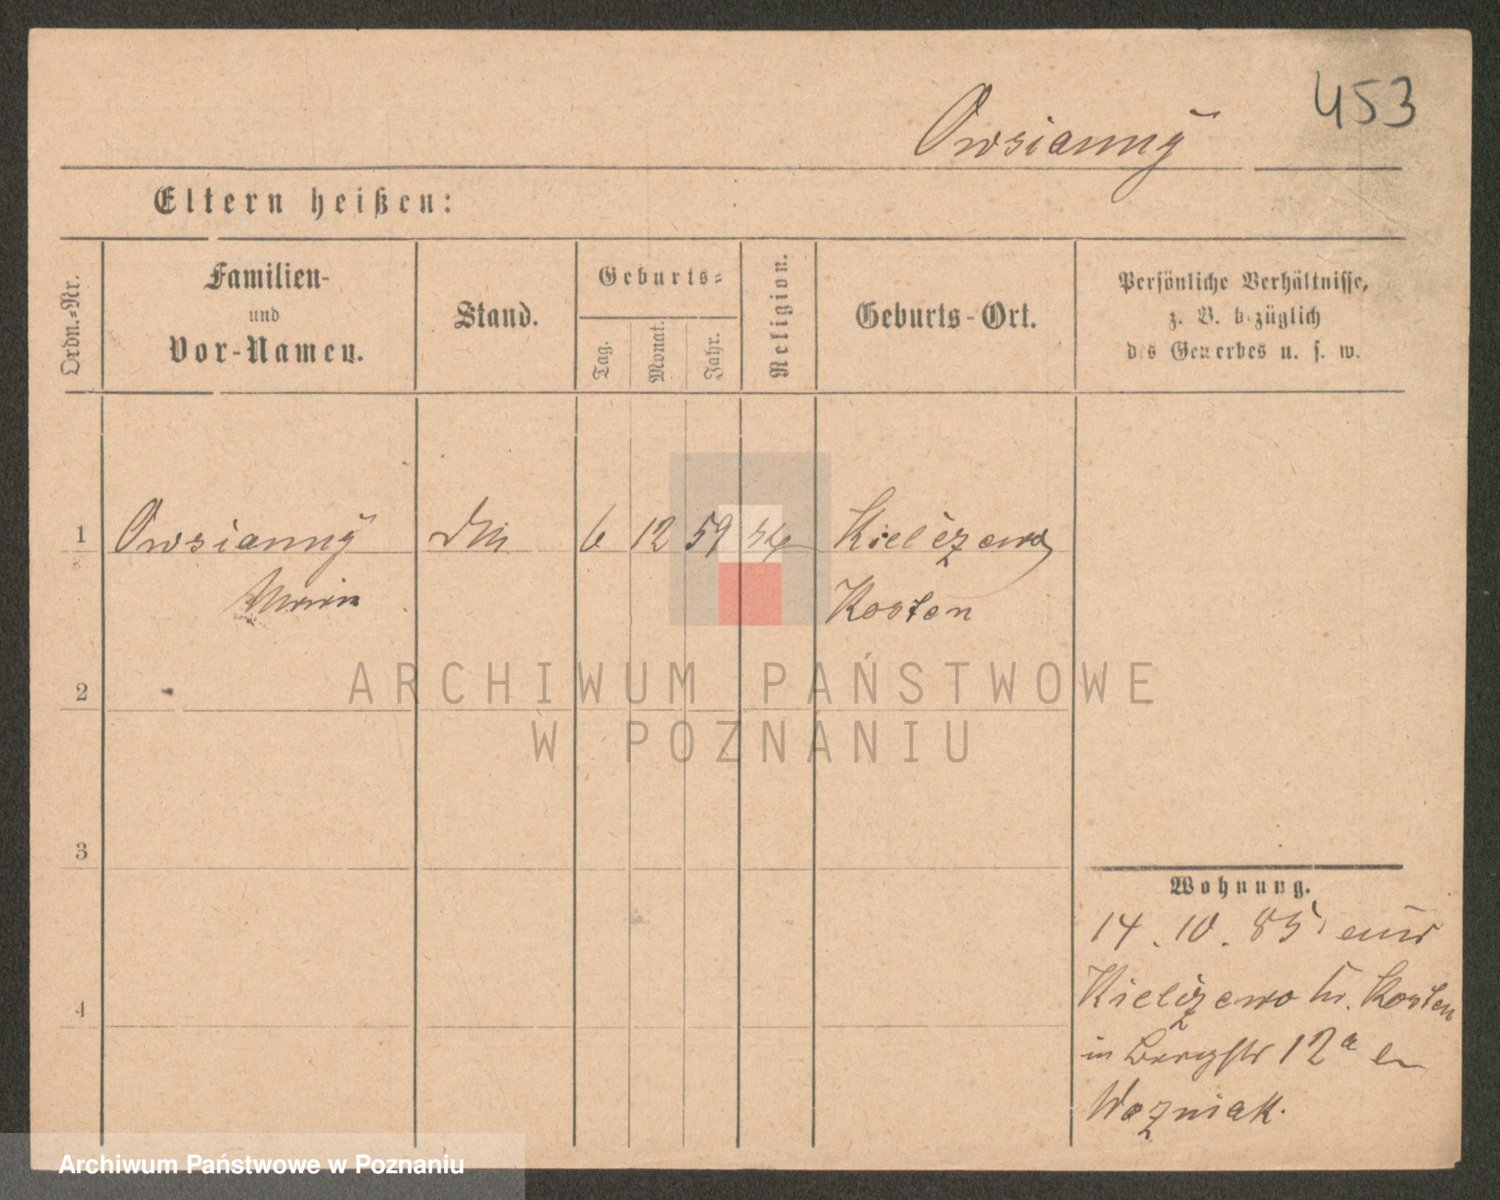 453
Owsianny
Eltern heißen:
Ordn.-Nr.
Familien-
und
Vor-Namen.
Stand.
Geburts-
Tag.
Monat.
Jahr.
Religion.
Geburts-Ort.
Persönliche Verhältnisse,
z. B. bezüglich
des Gewerbes u. s. w.
1 Owsianny 6 12 59 Kielczewo
Kosten
2
3
4
Wohnung.
14. 10. 85 aus
Kielczewo Kr. Kosten
in Bergstr 12a
Wozniak.
ARCHIWUM PAŃSTWOWE
W POZNANIU
Archiwum Państwowe w Poznaniu